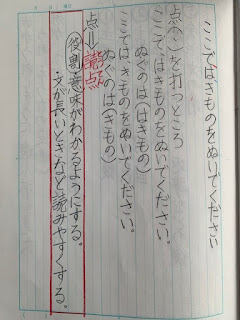 ここではきものをぬいでください
点(、)を打つところ
ここで、はきものをぬいでください。
ぬぐのは(はきもの)
ここでは、きものをぬいでください。
ぬぐのは(きもの)
点⇒読点
役割・意味がわかるようにする。
・文が長いときなど読みやすくする。